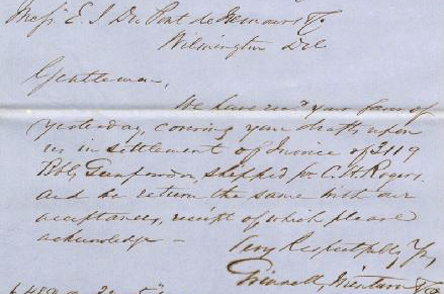 Mess E. I Du Pont de Nemours & Co
Wilmington Del
Gentlemen,
We have rec'd your favor of
yesterday, covering your drafts upon
us in settlement of Invoice of 3119
Bbls Gunpowder, shipped pr C. H. Rogers.
and we return the same with our
acceptances, receipt of which please
acknowledge —
Very Respectfully Yrs,
Grinnell, Minturn & Co